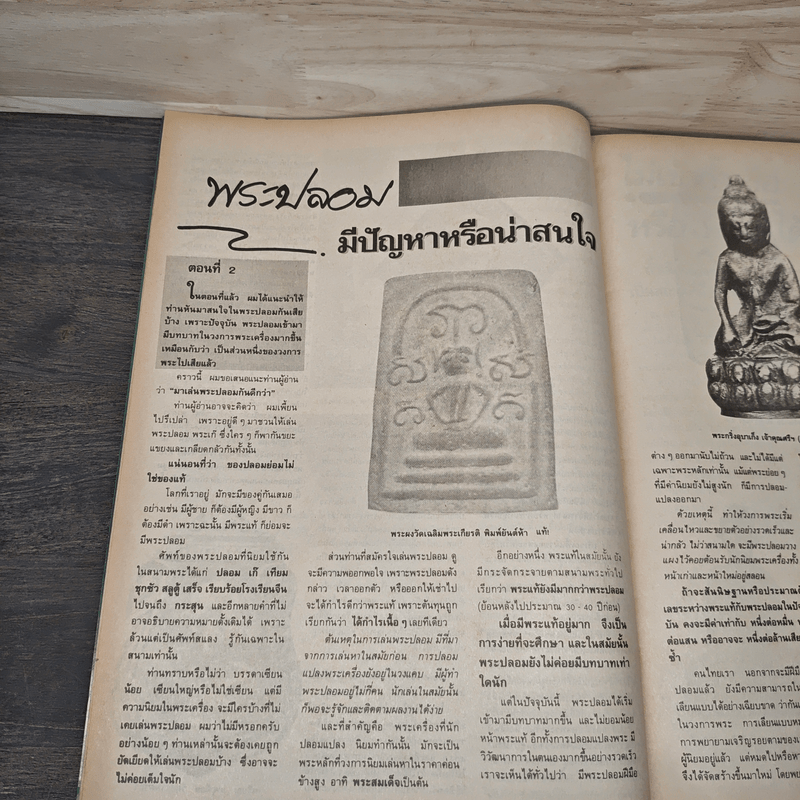 พระปลอม
มีปัญหาหรือน่าสนใจ
ตอนที่ 2
ในตอนที่แล้ว ผมได้แนะนำให้
ท่านหันมาสนใจในพระปลอมกันเสีย
บ้าง เพราะปัจจุบัน พระปลอมเข้ามา
มีบทบาทในวงการพระเครื่องมากขึ้น
เหมือนกับว่า เป็นส่วนหนึ่งของวงการ
พระไปเสียแล้ว
คราวนี้ ผมขอเสนอแนะท่านผู้อ่าน
ว่า "มาเล่นพระปลอมกันดีกว่า"
ท่านผู้อ่านอาจจะคิดว่า ผมเพี้ยน
ไปรึเปล่า เพราะอยู่ดี ๆ มาชวนให้เล่น
พระปลอม พระเก๊ ซึ่งใคร ๆ ก็พากันขยะ
แขยงและเกลียดกลัวกันทั้งนั้น
แน่นอนที่ว่า ของปลอมย่อมไม่
ใช่ของแท้
โลกที่เราอยู่ มักจะมีของคู่กันเสมอ
อย่างเช่น มีผู้ชาย ก็ต้องมีผู้หญิง มีขาว ก็
ต้องมีดำ เพราะฉะนั้น มีพระแท้ ก็ย่อมจะ
มีพระปลอม
ศัพท์ของพระปลอมที่นิยมใช้กัน
ในสนามพระได้แก่ ปลอม เก๊ เทียม
ชุกชัว สลูตู้ เสร็จ เรียบร้อยโรงเรียนจีน
ไปจนถึง กระสุน และอีกหลายคำที่ไม่
อาจอธิบายความหมายดั้งเดิมได้ เพราะ
ล้วนแต่เป็นศัพท์สแลง รู้กันเฉพาะใน
สนามเท่านั้น
ท่านทราบหรือไม่ว่า บรรดาเซียน
น้อย เซียนใหญ่หรือไม่ใช่เซียน แต่มี
ความนิยมในพระเครื่อง จะมีใครบ้างที่ไม่
เคยเล่นพระปลอม ผมว่าไม่มีหรอกครับ
อย่างน้อย ๆ ท่านเหล่านั้นจะต้องเคยถูก
ยัดเยียดให้เล่นพระปลอมบ้าง ซึ่งอาจจะ
ไม่ค่อยเต็มใจนัก
พระผงวัดเฉลิมพระเกียรติ พิมพ์ยันต์ห้า แท้!
ส่วนท่านที่สมัครใจเล่นพระปลอม ดู
จะมีความพออกพอใจ เพราะพระปลอมดัง
กล่าว เวลาออกตัว หรือออกให้เช่าไป
จะได้กำไรดีกว่าพระแท้ เพราะต้นทุนถูก
เรียกกันว่า ได้กำไรเนื้อ ๆ เลยทีเดียว
ต้นเหตุในการเล่นพระปลอม มีที่มา
จากการเล่นหาในสมัยก่อน การปลอม
แปลงพระเครื่องยังอยู่ในวงแคบ มีผู้ทำ
พระปลอมอยู่ไม่กี่คน นักเล่นในสมัยนั้น
ก็พอจะรู้จักและติดตามผลงานได้ง่าย
และที่สำคัญคือ พระเครื่องที่นัก
ปลอมแปลง นิยมทำกันนั้น มักจะเป็น
พระหลักที่วงการนิยมเล่นหาในราคาค่อน
ข้างสูง อาทิ พระสมเด็จเป็นต้น
อีกอย่างหนึ่ง พระแท้ในสมัยนั้น ยัง
มีกระจัดกระจายตามสนามพระทั่วไป
เรียกว่า พระแท้ยังมีมากกว่าพระปลอม
(ย้อนหลังไปประมาณ 30 - 40 ปีก่อน)
เมื่อมีพระแท้อยู่มาก จึงเป็น
การง่ายที่จะศึกษา และในสมัยนั้น
พระปลอมยังไม่ค่อยมีบทบาทเท่า
ใดนัก
แต่ในปัจจุบันนี้ พระปลอมได้เริ่ม
เข้ามามีบทบาทมากขึ้น และไม่ยอมน้อย
หน้าพระแท้ อีกทั้งการปลอมแปลงพระ มี
วิวัฒนาการในตนเองมากขึ้นอย่างรวดเร็ว
เราจะเห็นได้ทั่วไปว่า มีพระปลอมฝีมือ
พระกริ่งอุบาเก็ง เจ้าคุณศรีฯ (
ต่าง ๆ ออกมานับไม่ถ้วน และไม่ได้มีแต่
เฉพาะพระหลักเท่านั้น แม้แต่พระย่อย ๆ
ที่มีค่านิยมยังไม่สูงนัก ก็มีการปลอม-
แปลงออกมา
ด้วยเหตุนี้ ทำให้วงการพระเริ่ม
เคลื่อนไหวและขยายตัวอย่างรวดเร็วและ
น่ากลัว ไม่ว่าสนามใด จะมีพระปลอมวาง
แผงไว้คอยต้อนรับนักนิยมพระเครื่องทั้ง
หน้าเก่าและหน้าใหม่อยู่สลอน
ถ้าจะสันนิษฐานหรือประมาณตั
เลขระหว่างพระแท้กับพระปลอมในปัจ
บัน คงจะมีค่าเท่ากับ หนึ่งต่อหมื่น ห
ต่อแสน หรืออาจจะ หนึ่งต่อล้านเสีย
ซ้ำ
คนไทยเรา นอกจากจะมีฝีมื
ปลอมแล้ว ยังมีความสามารถใน
เลียนแบบได้อย่างเฉียบขาด ว่ากัน
ในวงการพระ การเลียนแบบหม
การพยายามเจริญรอยตามของเ
ผู้นิยมอยู่แล้ว แต่หมดไปหรือหา
จึงได้จัดสร้างขึ้นมาใหม่ โดยพย